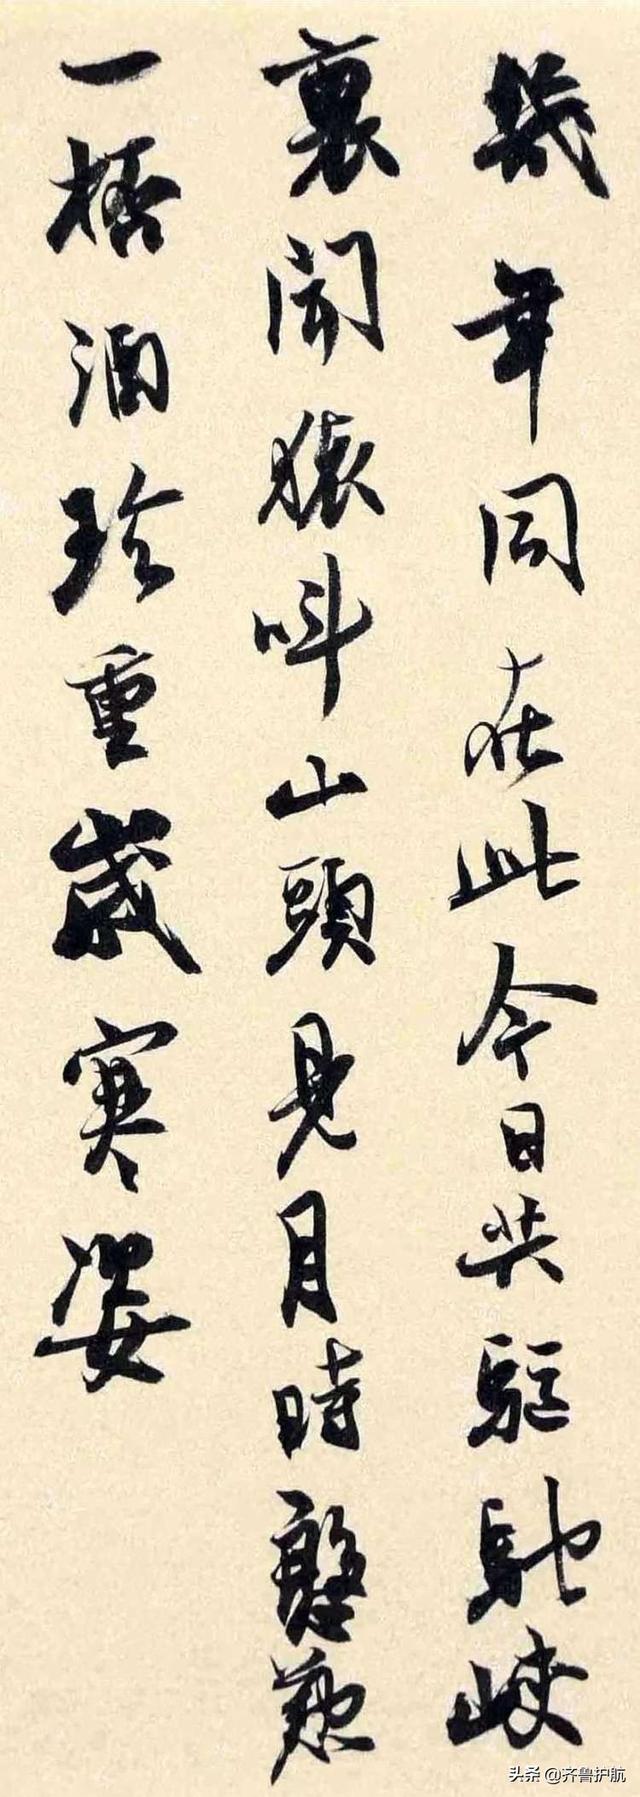 幾年同在此今日共驅馳峽
裏聞猿叫山頭見月時慇懃
一桮酒珍重歲寒姿
头条 @齐鲁护航